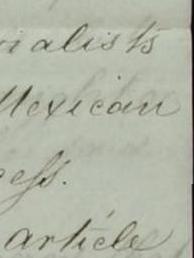 ialists
Mexican
cess.
article